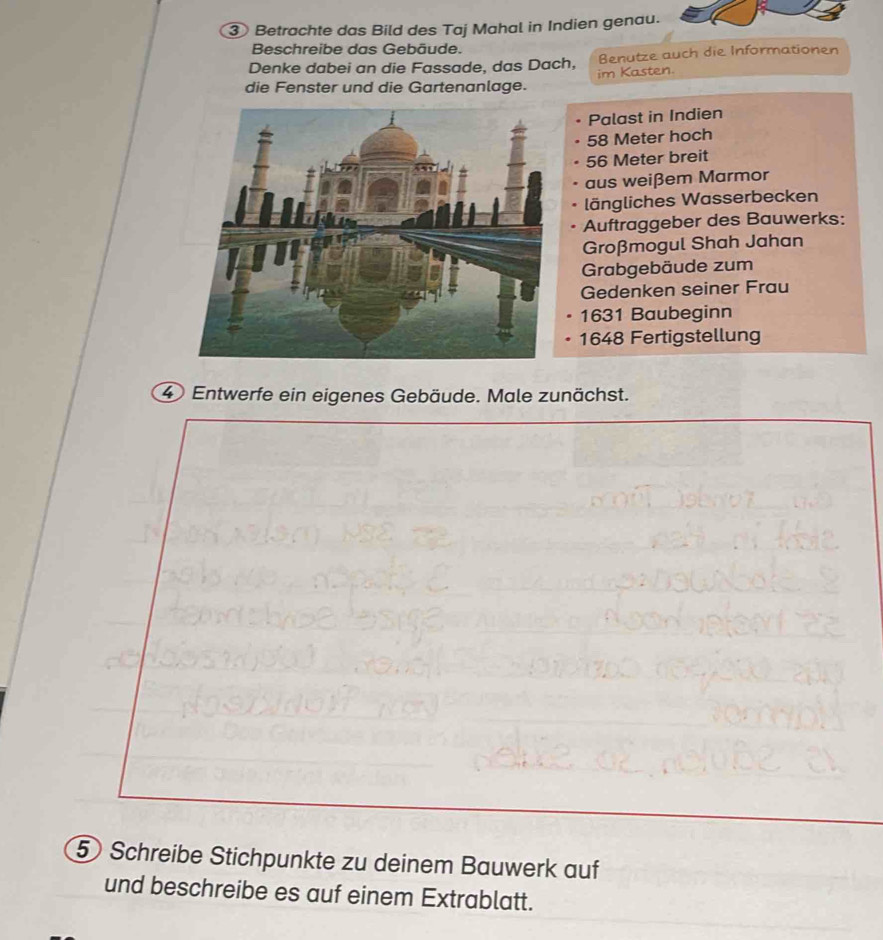 3 Betrachte das Bild des Taj Mahal in Indien genau.
Beschreibe das Gebäude.
Denke dabei an die Fassade, das Dach,
die Fenster und die Gartenanlage.
Benutze auch die Informationen
im Kasten.
• Palast in Indien
• 58 Meter hoch
• 56 Meter breit
• aus weißem Marmor
• längliches Wasserbecken
• Auftraggeber des Bauwerks:
Großmogul Shah Jahan
Grabgebäude zum
Gedenken seiner Frau
• 1631 Baubeginn
• 1648 Fertigstellung
4 Entwerfe ein eigenes Gebäude. Male zunächst.
5 Schreibe Stichpunkte zu deinem Bauwerk auf
und beschreibe es auf einem Extrablatt.